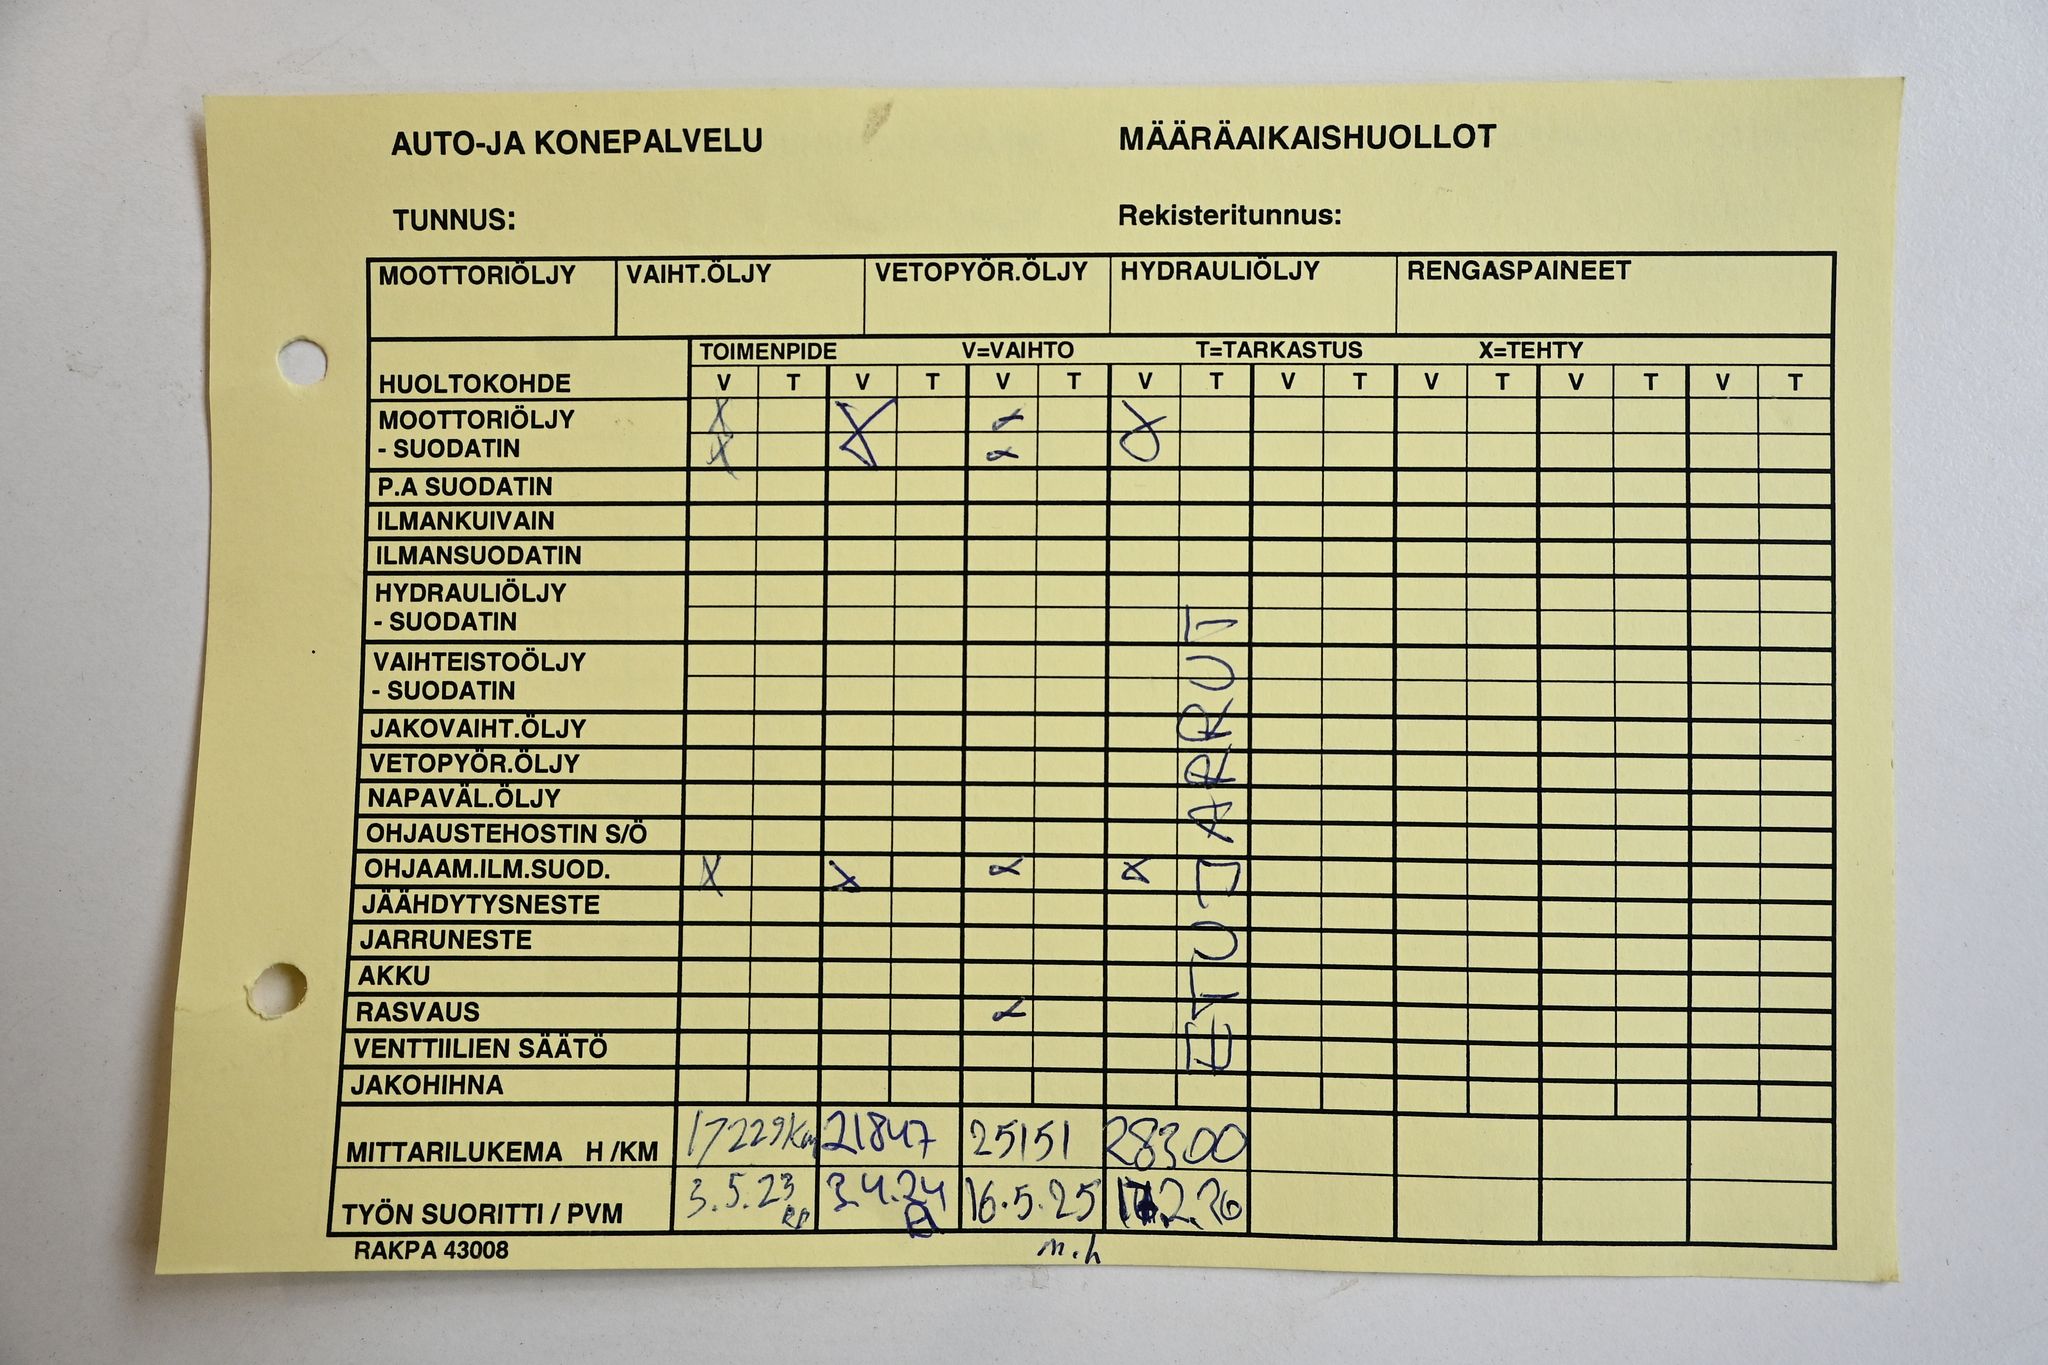 AUTO-JA KONEPALVELU MÄÄRÄAIKAISHUOLLOT
TUNNUS: Rekisteritunnus:
MOOTTORIÖLJY VAIHT.ÖLJY VETOPYÖR.ÖLJY HYDRAULIÖLJY RENGASPAINEET
TOIMENPIDE V=VAIHTO T=TARKASTUS X=TEHTY
HUOLTOKOHDE V T V T V T V T V T V T V T V T
MOOTTORIÖLJY X X X X
- SUODATIN X X
P.A SUODATIN
ILMANKUIVAIN
ILMANSUODATIN
HYDRAULIÖLJY
- SUODATIN
VAIHTEISTOÖLJY
- SUODATIN
JAKOVAIHT.ÖLJY
VETOPYÖR.ÖLJY
NAPAVÄL.ÖLJY
OHJAUSTEHOSTIN S/Ö
OHJAAM.ILM.SUOD. X X X X
JÄÄHDYTYSNESTE
JARRUNESTE
AKKU
RASVAUS X
VENTTIILIEN SÄÄTÖ
JAKOHIHNA
ETUJARRUT
MITTARILUKEMA H /KM 17229Km 21847 25151 28300
TYÖN SUORITTI / PVM 3.5.23 3.4.24 16.5.25 17.2.26
RAKPA 43008 m.h